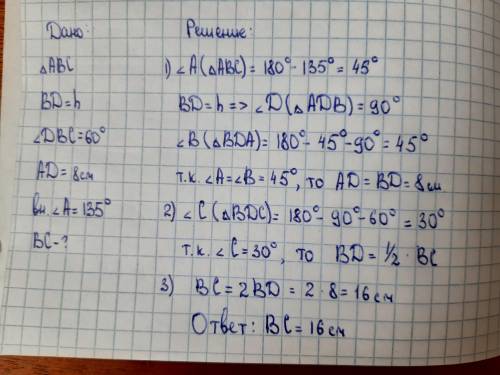 Дано:
△ABC
BD=h
∠DBC=60°
AD=8см
вн.∠A=135°
BC-?
Решение:
1) ∠A(△ABC)=180°-135°=45°
BD=h=>∠D(△ADB)=90°
∠B(△BDA)=180°-45°-90°=45°
т.к.∠A=∠B=45°, то AD=BD=8см
2) ∠C(△BDC)=180°-90°-60°=30°
т.к. ∠C=30°, то BD=1/2·BC
3) BC=2BD=2·8=16см
Ответ: BC=16см